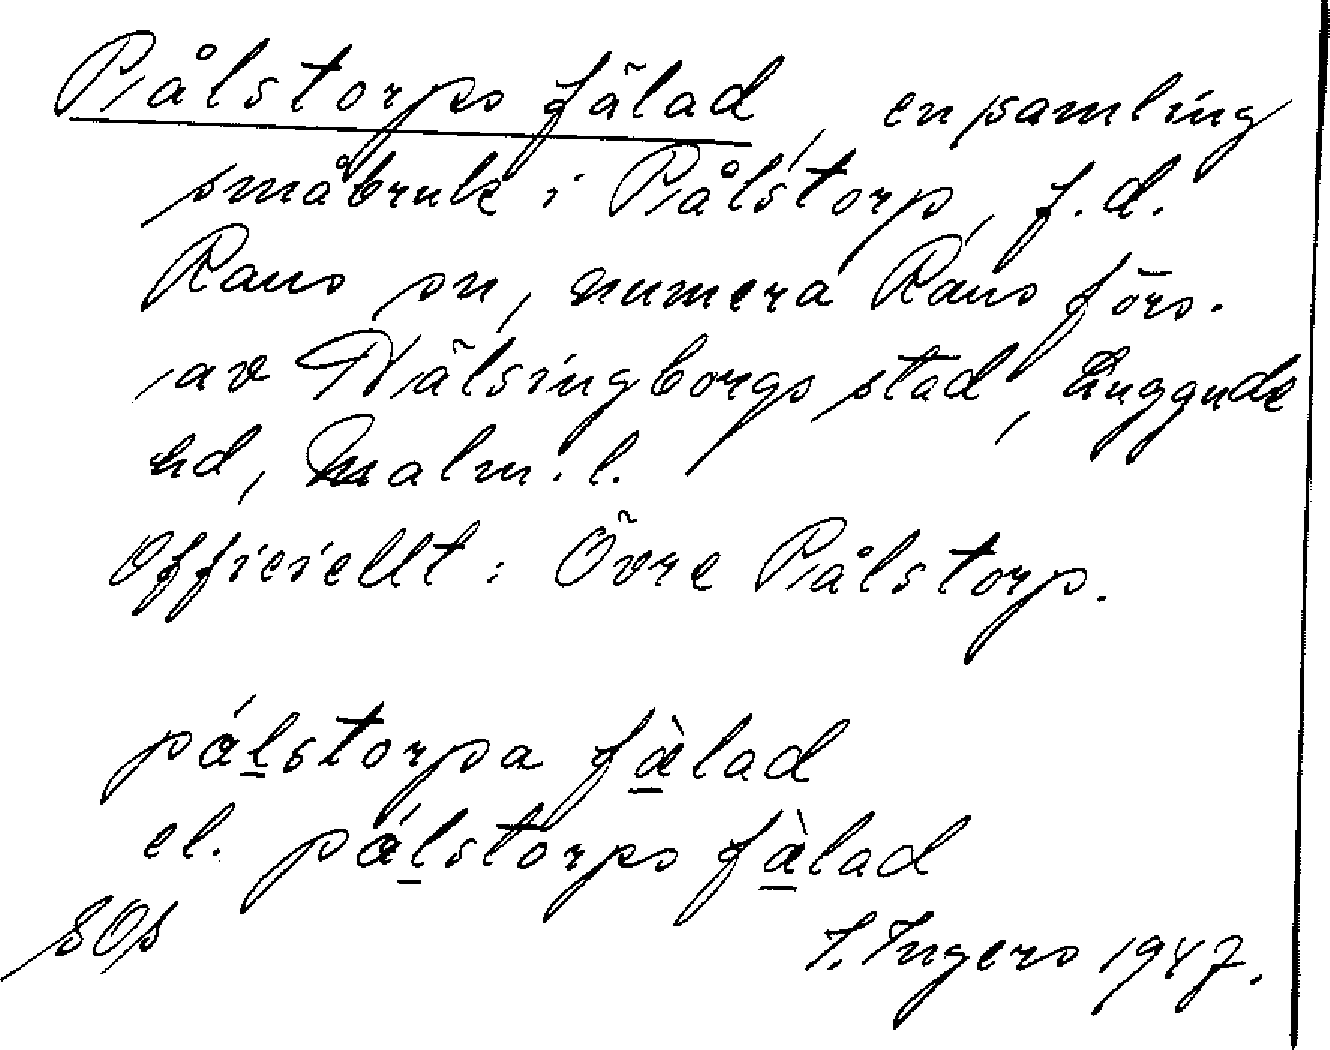 Pålstorps fälad, en samling
småbruk i Pålstorp, f.d.
Raus sn, numera Raus förs.
av Hälsingborgs stad, Luggude
hd, Malm. l.
Officiellt: Övre Pålstorp.
pálstorpa fàlad
el. pálstorps fàlad
SOs
I. Ingers 1947.